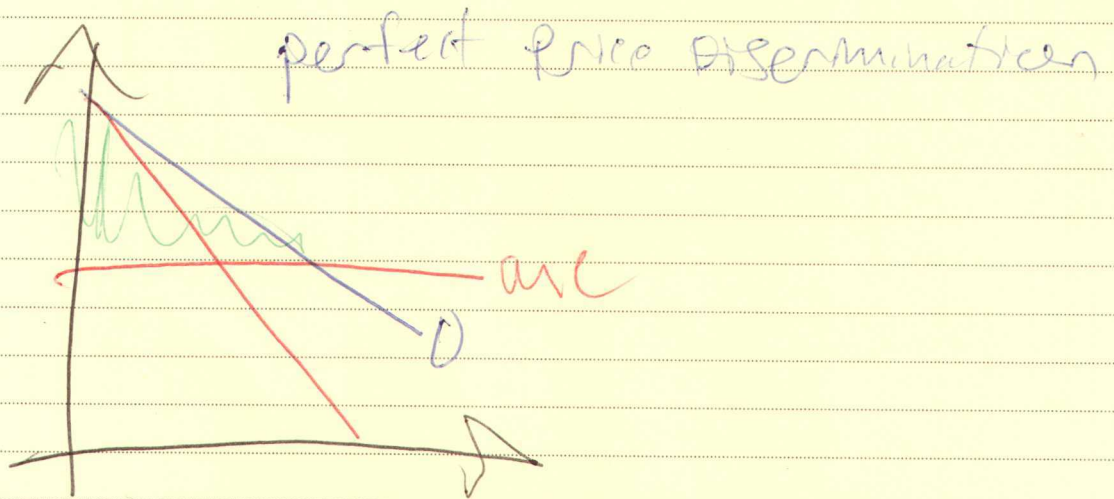 perfect price Discrimination
MC
D